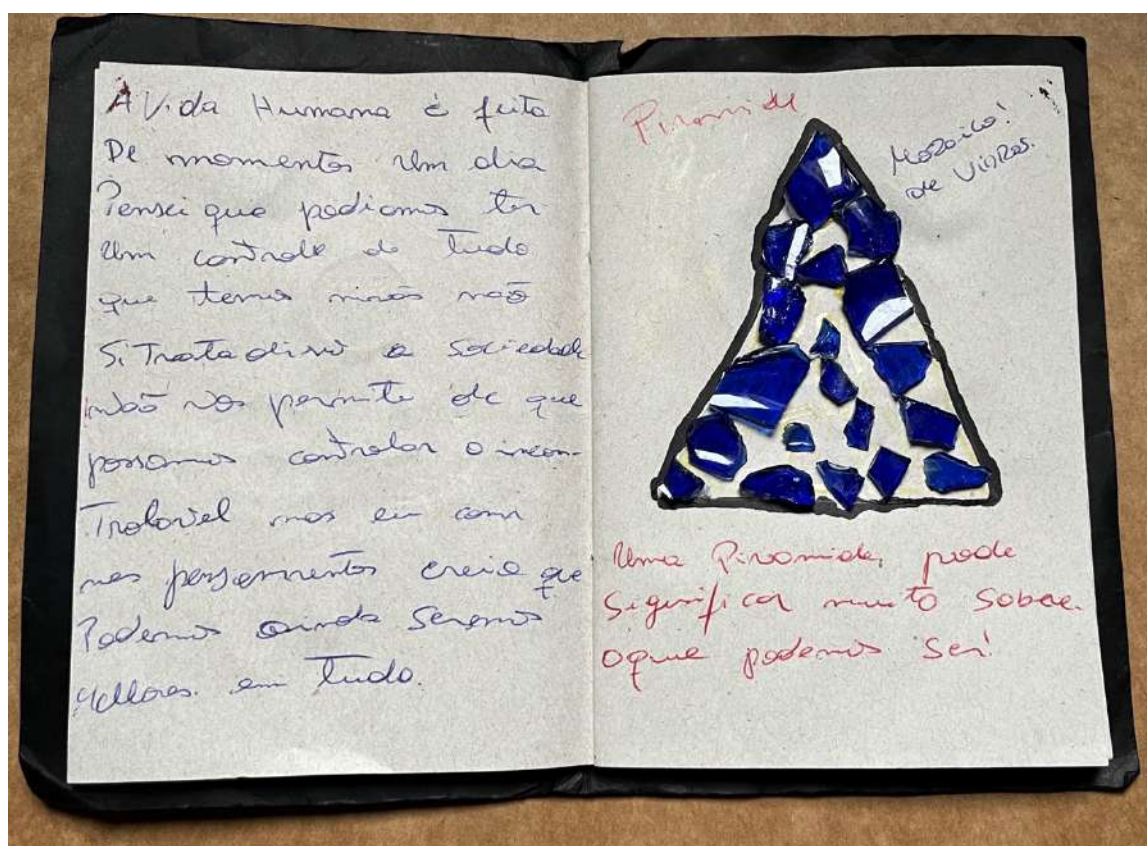 A Vida Humana é feita
De momentos Um dia
Pensei que podiamos ter
Um controle de Tudo
que temos não
Si Trata disso a Sociedade
não nos permite de que
possamos controlar o incon-
Trolavel mas eu com
meus pensamentos creio que
Podemos ainda Seremos
Melhores. em Tudo.
Piramide
Mozaico!
de ViDRos.
Uma Piramide, pode
Significar muito Sobre.
oque podemos Ser!